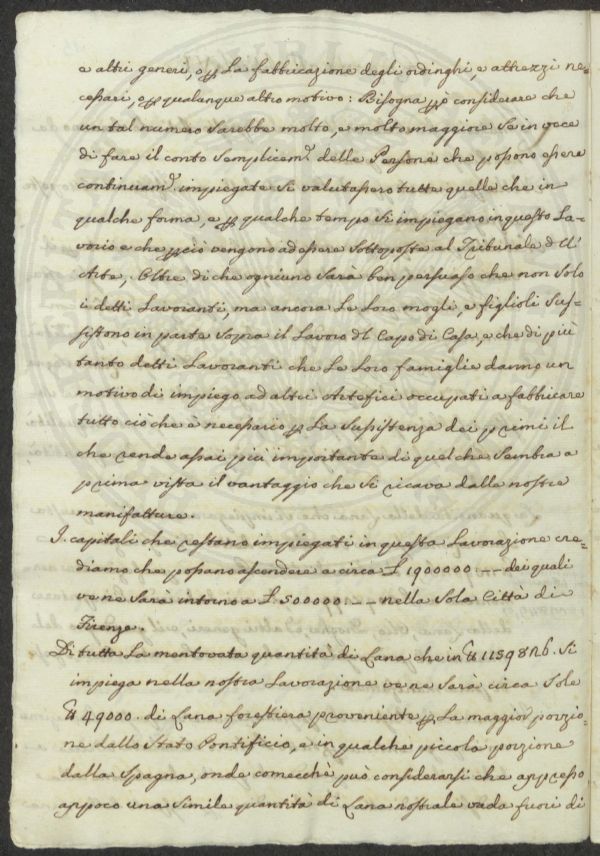 e altri generi, o p La fabbricazione degli ordinghi, e attrezzi ne=
cessari, o p qualunque altro motivo: Bisogna però considerare che
un tal numero sarebbe molto, e molto maggiore se in vece
di fare il conto semplicem.e delle Persone che possono essere
continuam.e impiegate si valutassero tutte quelle che in
qualche forma, e p qualche tempo si impiegano in questo La=
vorio e che perciò vengono ad essere sottoposte al Tribunale dll'
Arte, Oltre di che ogniuno sarà ben persuaso che non solo
i detti Lavoranti, ma ancora Le Loro mogli, e figlioli sus=
sistono in parte sopra il Lavoro dl Capo di Casa, e che di più
tanto detti Lavoranti che Le Loro famiglie danno un
motivo di impiego ad altri Artefici occupati a fabbricare
tutto ciò che è necessario p La sussistenza dei primi il
che rende assai più importante di quel che sembra a
prima vista il vantaggio che si ricava dalle nostre
manifatture.
I capitali che restano impiegati in questa Lavorazione cre=
diamo che possano ascendere a circa £ 1900000:-- dei quali
ve ne sarà intorno a £: 500000:-- nella sola Città di
Firenze.
Di tutta La mentovata quantità di Lana che in lb 1159826. si
impiega nella nostra Lavorazione ve ne sarà circa sole
lb 49000. di Lana forestiera proveniente p La maggior porzio=
ne dallo Stato Pontificio, e in qualche piccola porzione
dalla Spagna, onde comecchè può considerarsi che appresso
appoco una simile quantità di Lana nostrale vada fuori di